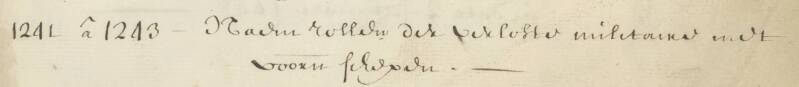 1241 â 1243 - Naem rollen der verloste militaire met
voorn schepen. -